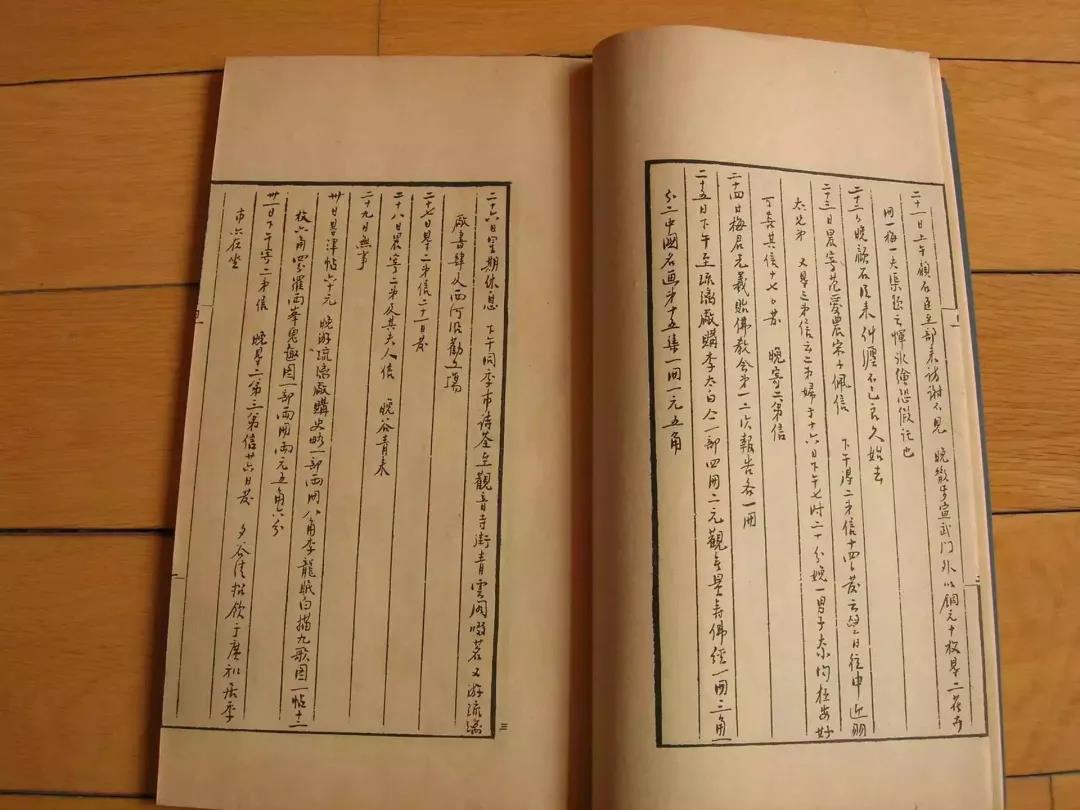 二十一日上午顧石臣至部来訪謝不見　晚散步宣武门外以銅元十枚得二花卉
冊一梅一夫渠題云惲冰繪恐假託也
二十二日晚顧石臣来糾纏不已良久始去
二十三日晨寄范愛農宋子佩信　下午得二弟信十四日發云望日往申迎羽
太兄弟　又得三弟信云二弟婦于十六日下午七时二十分娩一男子大小均極安好
可喜其信十七日發　晚寄二弟信
二十四日梅君光羲貽佛教会第一二次報告各一冊
二十五日下午至琉璃廠購李太白仝一部四冊二元觀无量寿佛經一冊三角一
分二中國名画第十五集一冊一元五角
二十六日星期休息　下午同季市詩荃至觀音寺街青雲阁啜茗又游琉璃
廠書肆及西河沿勸工場
二十七日得二弟信二十一日發
二十八日晨寄二弟及其夫人信　晚谷青來
二十九日無事
卅日得津帖六十元　晚游琉璃廠購史略一部兩冊八角李龍眠白描九歌图一帖十二
枚六角四分羅兩峯鬼趣图一部兩冊兩元五角六分
卅一日下午寄二弟信　晚得二弟三弟信廿六日發　夕谷清招飲于廣和居季
市亦在坐